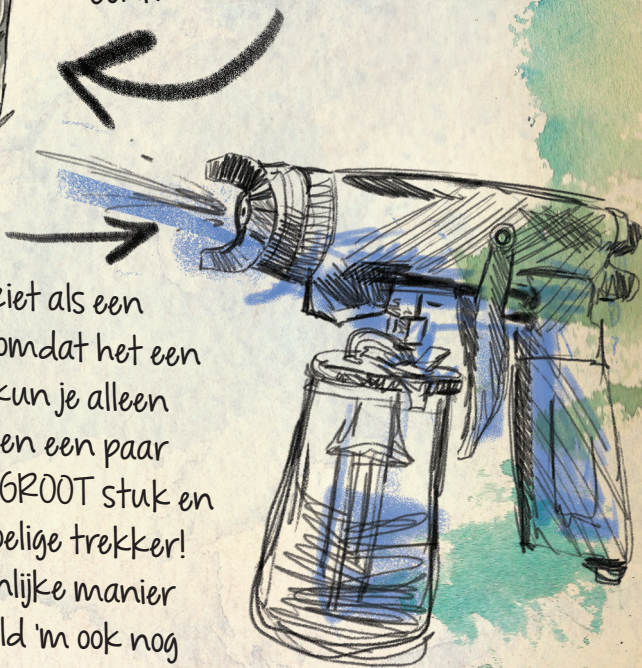 ziet als een
omdat het een
kun je alleen
en een paar
GROOT stuk en
trekker!
manier
'm ook nog